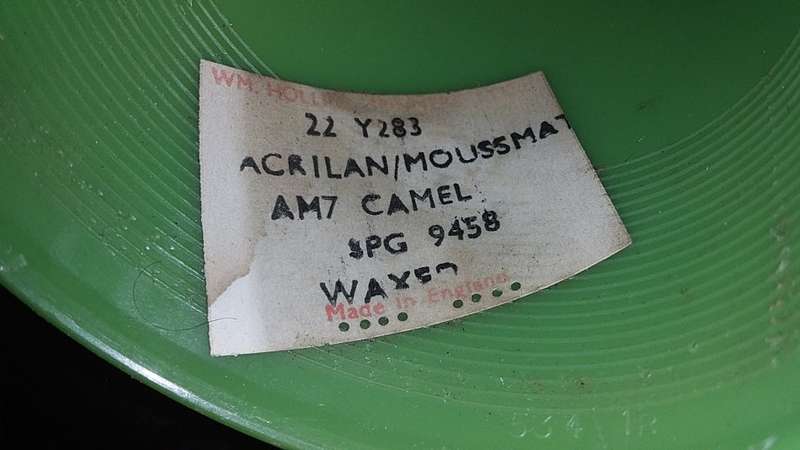 WM.
22 Y283
ACRILAN/MOUSSMAT
AM7 CAMEL
SPG 9458
WAXED
Made in England